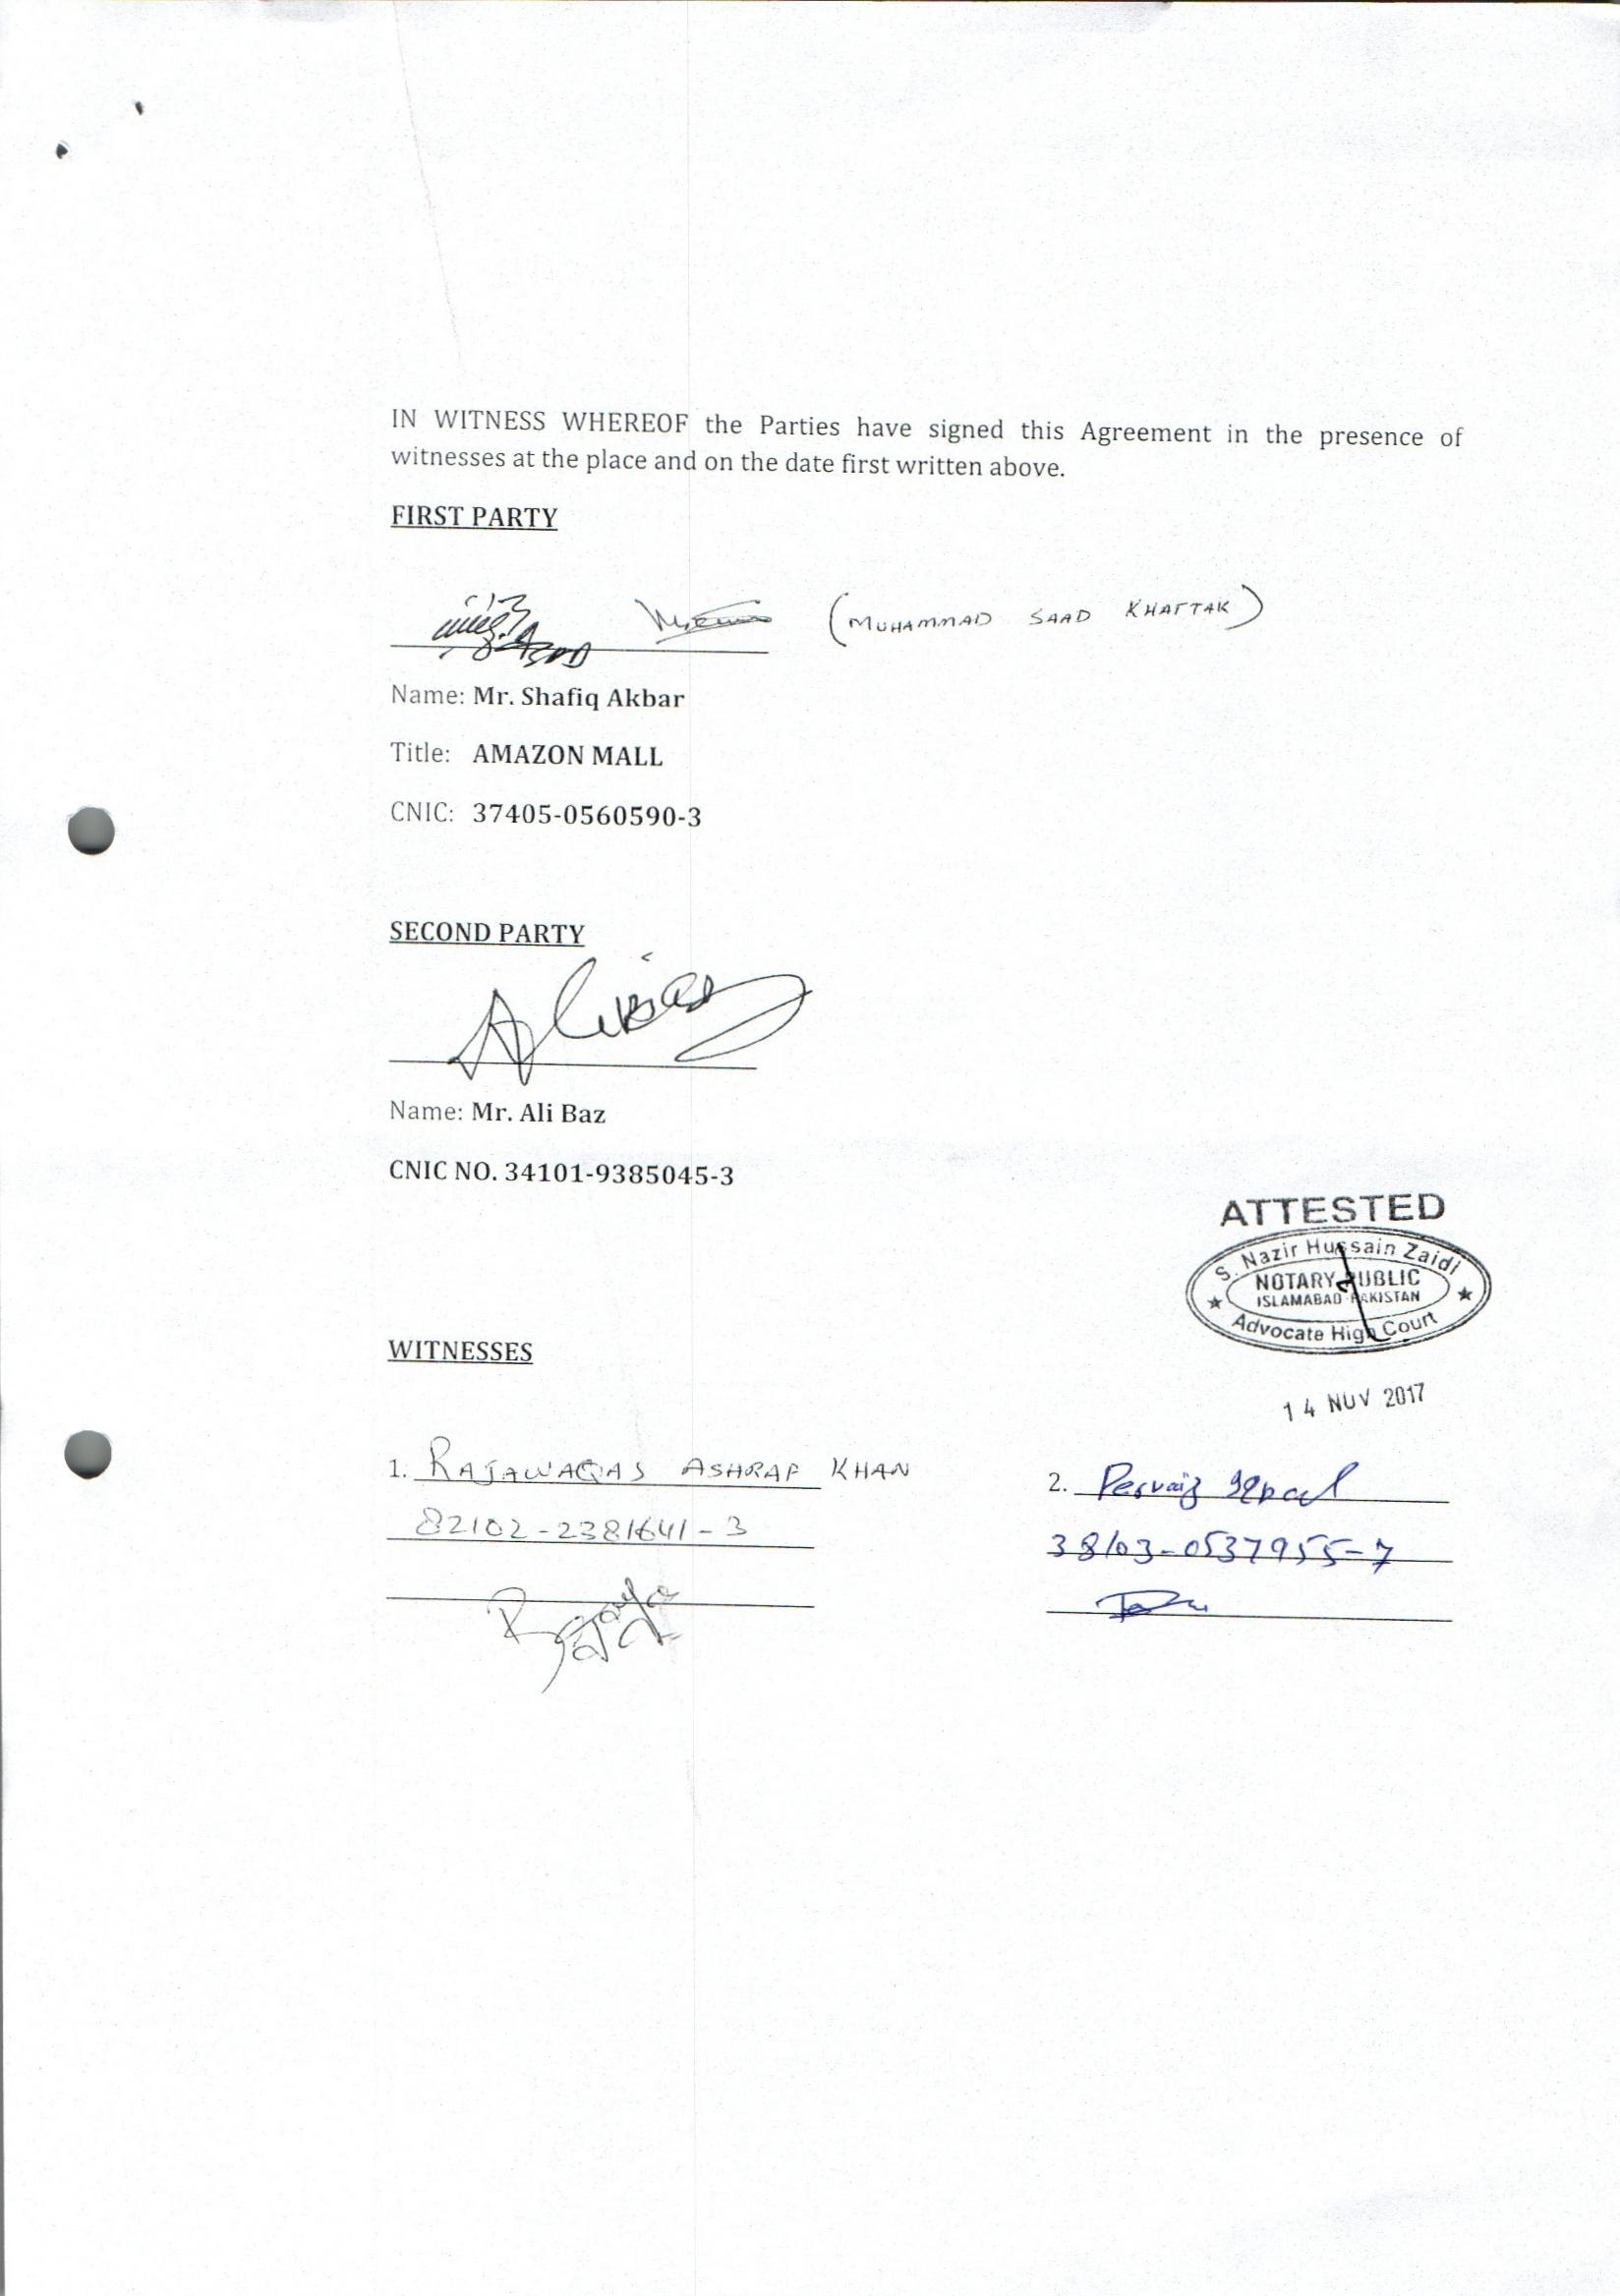 IN WITNESS WHEREOF the Parties have signed this Agreement in the presence of
witnesses at the place and on the date first written above.
FIRST PARTY
(MUHAMMAD SAAD KHATTAK)
Name: Mr. Shafiq Akbar
Title: AMAZON MALL
CNIC: 37405-0560590-3
SECOND PARTY
Ali Baz
Name: Mr. Ali Baz
CNIC NO. 34101-9385045-3
ATTESTED
S. Nazir Hussain Zaidi
NOTARY PUBLIC
ISLAMABAD PAKISTAN
Advocate High Court
14 NOV 2017
WITNESSES
1. RAJAWAQAS ASHRAF KHAN
82102-2381641-3
2. Pervaiz Iqbal
38103-0537955-7